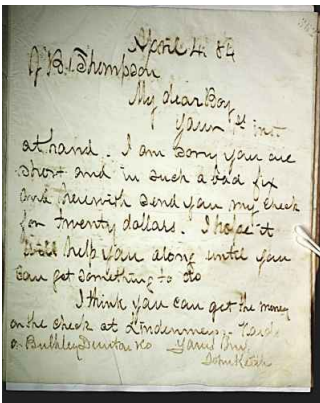 April 4. 84
J B. Thompson
My dear Boy
Yours 1st inst
at hand. I am sorry you are
short and in such a bad fix
and herewith send you my check
for twenty dollars. I hope it
will help you along until you
can get something to do
I think you can get the money
on the check at Lindenmeyr
or Bulkley Dunton & Co Yours truly
John Keith